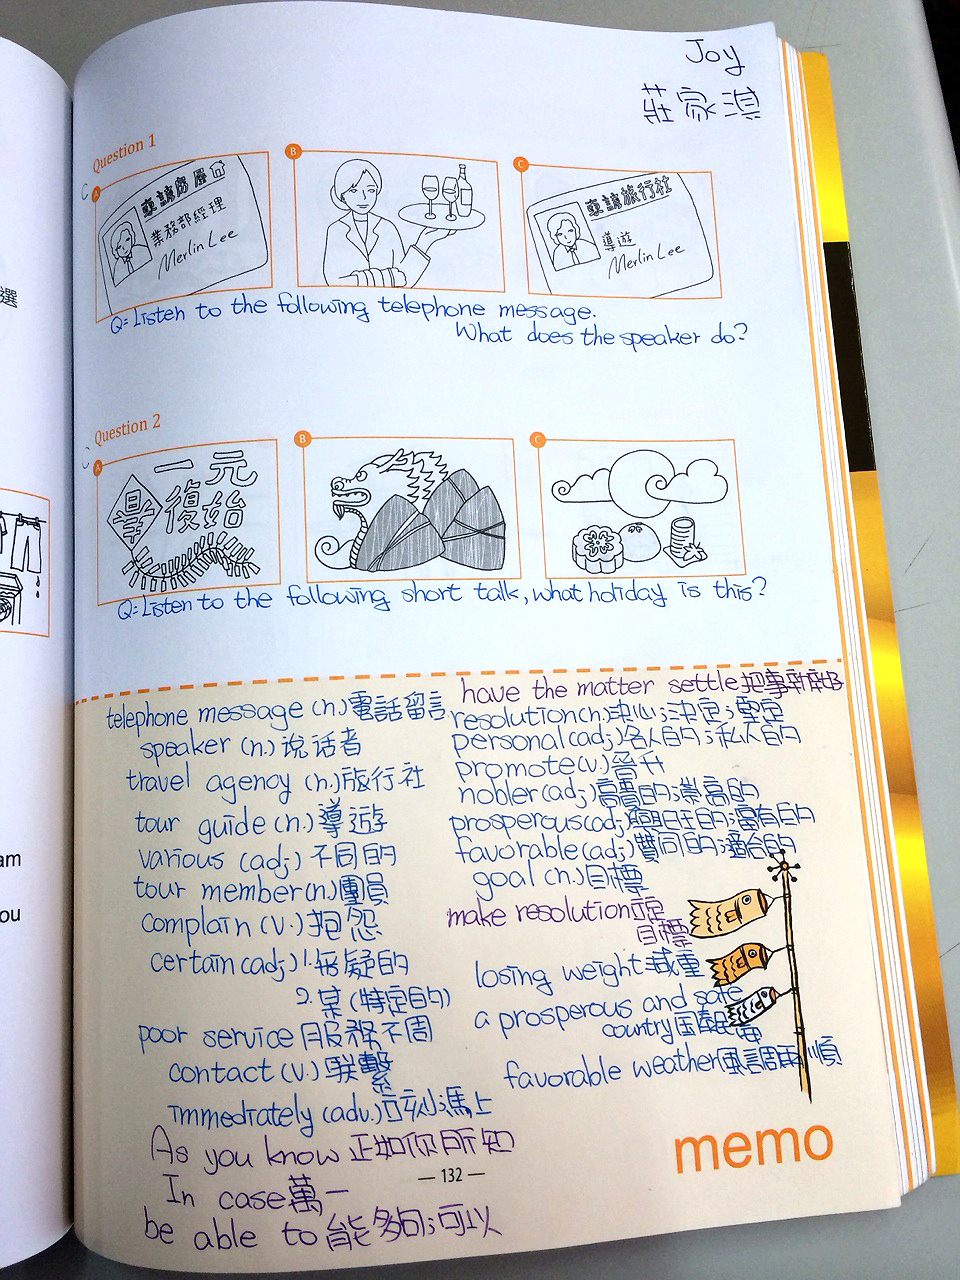 Joy
莊家淇
Question 1
A
東讀房屋
業務部經理
Merlin Lee
B
C
東讀旅行社
導遊
Merlin Lee
Q: Listen to the following telephone message.
What does the speaker do?
選
Question 2
A
一元
復始
B
C
Q: Listen to the following short talk, what holiday is this?
telephone message (n.) 電話留言
speaker (n.) 说话者
travel agency (n.) 旅行社
tour guide (n.) 導遊
various (adj) 不同的
tour member (n.) 團員
complain (v.) 抱怨
certain (adj) 1. 無疑的
2. 某(特定的)
poor service 服務不周
contact (v.) 联繫
immediately (adv.) 立刻;馬上
As you know 正如你所知
In case 萬一
be able to 能夠;可以
have the matter settle 把事
resolution (n.) 決心;決定;堅定
personal (adj) 各人的;私人的
promote (v.) 晉升
nobler (adj) 高貴的;崇高的
prosperous (adj) 興旺的;富有的
favorable (adj) 贊同的;適合的
goal (n.) 目標
make resolution 立定
目標
losing weight 減重
a prosperous and safe
country 国泰民
favorable weather 風調雨順
memo
— 132 —
am
ou